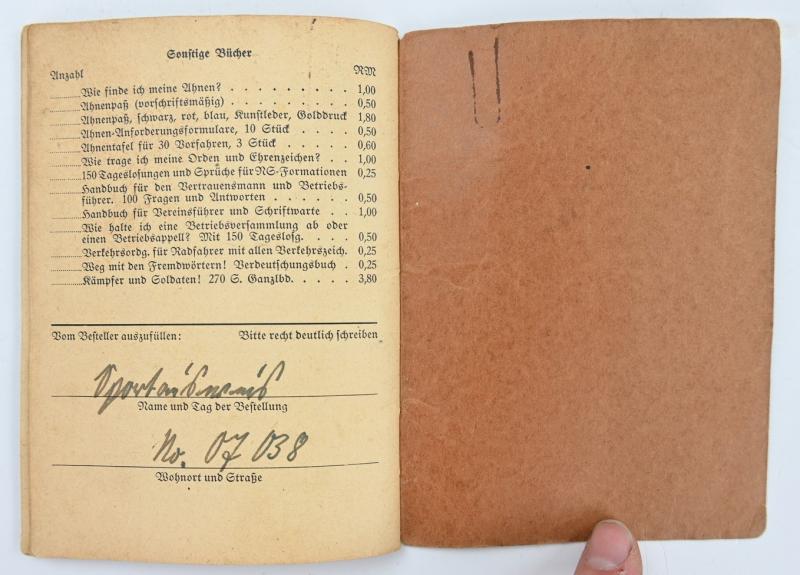 Sonstige Bücher
Anzahl RM
Wie finde ich meine Ahnen? . . . . . . . . . 1,00
Ahnenpaß (vorschriftsmäßig) . . . . . . . . . 0,50
Ahnenpaß, schwarz, rot, blau, Kunstleder, Golddruck 1,80
Ahnen-Anforderungsformulare, 10 Stück . . . . 0,50
Ahnentafel für 30 Vorfahren, 3 Stück . . . . . 0,60
Wie trage ich meine Orden und Ehrenzeichen? . . 1,00
150 Tageslosungen und Sprüche für NS-Formationen 0,25
Handbuch für den Vertrauensmann und Betriebs-
führer. 100 Fragen und Antworten . . . . . . 0,50
Handbuch für Vereinsführer und Schriftwarte . . 1,00
Wie halte ich eine Betriebsversammlung ab oder
einen Betriebsappell? Mit 150 Tageslosg. . . . 0,50
Verkehrsordg. für Radfahrer mit allen Verkehrszeich. 0,25
Weg mit den Fremdwörtern! Verdeutschungsbuch . 0,25
Kämpfer und Soldaten! 270 S. Ganzlbd. . . . . 3,80
Vom Besteller auszufüllen: Bitte recht deutlich schreiben
Sportausweis
Name und Tag der Bestellung
No. 07 038
Wohnort und Straße